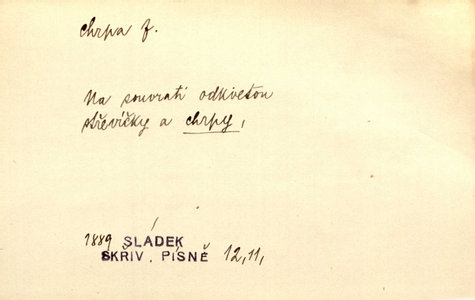 chrpa f.
Na souvrati odkvetou
střevíčky a chrpy,
1889 SLÁDEK
SKŘIV. PÍSNĚ 12,11,